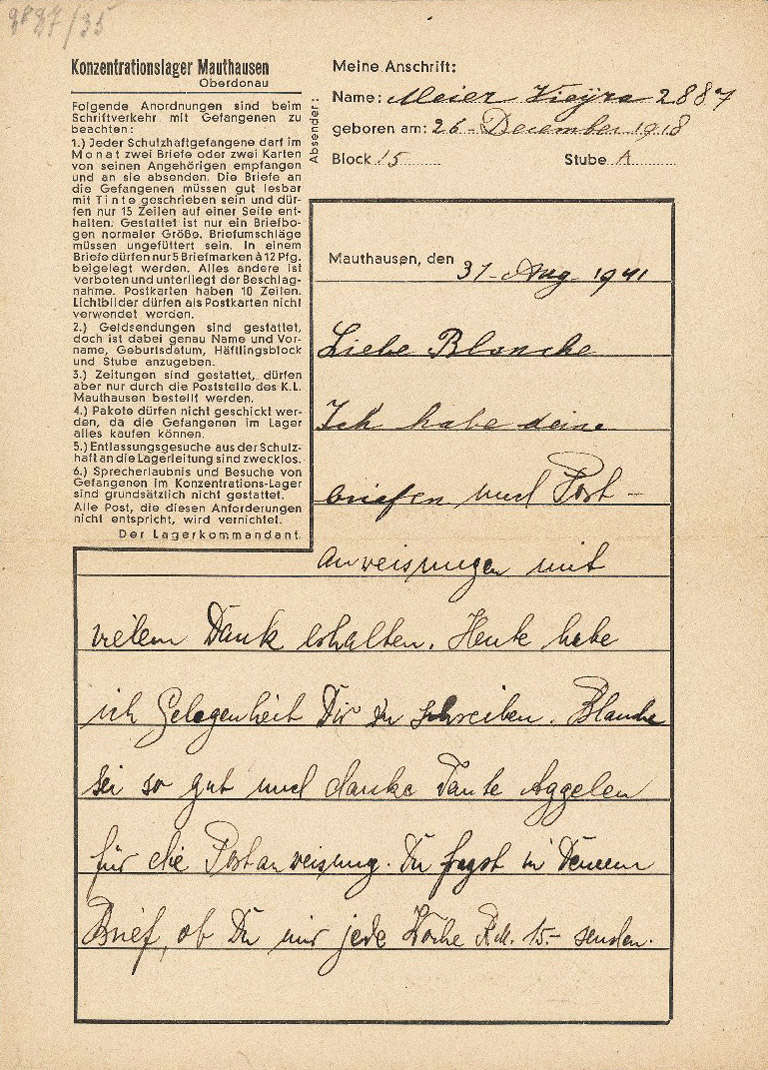 2887/35
Konzentrationslager Mauthausen
Oberdonau
Folgende Anordnungen sind beim
Schriftverkehr mit Gefangenen zu
beachten:
1.) Jeder Schutzhaftgefangene darf im
Monat zwei Briefe oder zwei Karten
von seinen Angehörigen empfangen
und an sie absenden. Die Briefe an
die Gefangenen müssen gut lesbar
mit Tinte geschrieben sein und dür-
fen nur 15 Zeilen auf einer Seite ent-
halten. Gestattet ist nur ein Briefbo-
gen normaler Größe. Briefumschläge
müssen ungefüttert sein. In einem
Briefe dürfen nur 5 Briefmarken à 12 Pfg.
beigelegt werden. Alles andere ist
verboten und unterliegt der Beschlag-
nahme. Postkarten haben 10 Zeilen.
Lichtbilder dürfen als Postkarten nicht
verwendet werden.
2.) Geldsendungen sind gestattet,
doch ist dabei genau Name und Vor-
name, Geburtsdatum, Häftlingsblock
und Stube anzugeben.
3.) Zeitungen sind gestattet, dürfen
aber nur durch die Poststelle des K.L.
Mauthausen bestellt werden.
4.) Pakete dürfen nicht geschickt wer-
den, da die Gefangenen im Lager
alles kaufen können.
5.) Entlassungsgesuche aus der Schutz-
haft an die Lagerleitung sind zwecklos.
6.) Sprecherlaubnis und Besuche von
Gefangenen im Konzentrations-Lager
sind grundsätzlich nicht gestattet.
Alle Post, die diesen Anforderungen
nicht entspricht, wird vernichtet.
Der Lagerkommandant
Absender:
Meine Anschrift:
Name: Meier Vieyra 2887
geboren am: 26-December 1918
Block 15 Stube A
Mauthausen, den 31-Aug 1941
Liebe Blanche
Ich habe deine
briefen und Post-
anweisungen mit
vielem Dank erhalten. Heute habe
ich Gelegenheit Dir zu schreiben. Blanche
sei so gut und danke Tante Aggelen
für die Postanweisung. Du fragst in Deinem
Brief, ob Du mir jede Woche RM. 15.- senden.